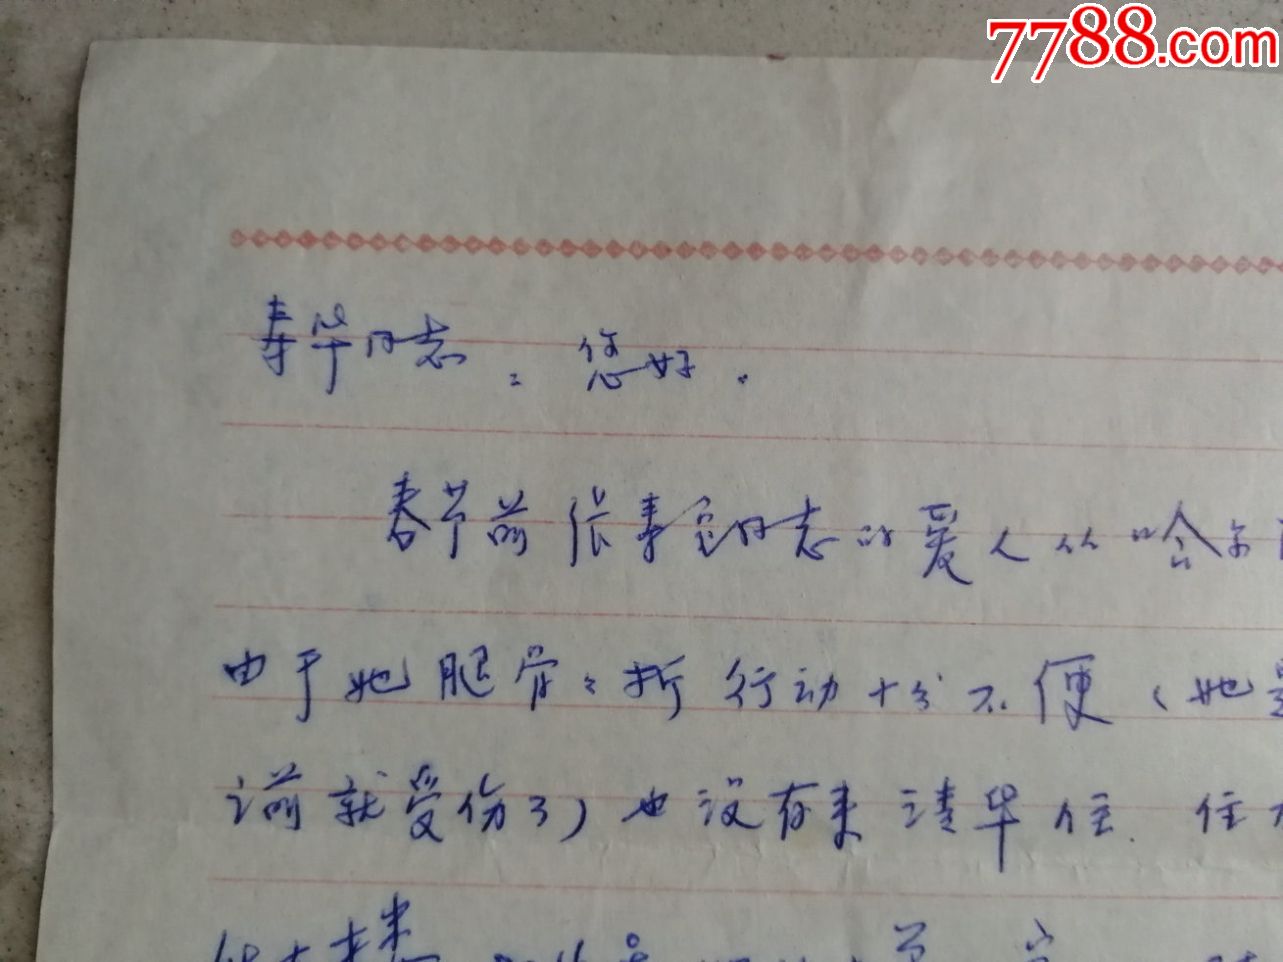 7788.com
寿华同志：您好．
春节前张寿宜同志的爱人从哈尔
由于她腿骨骨折行动十分不便（她
前就受伤了）也没有来清华住．住